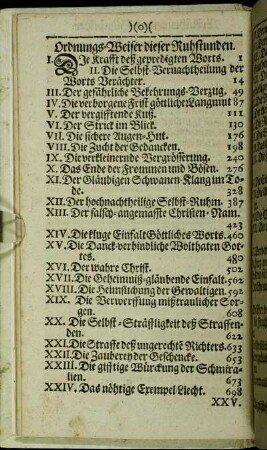 )(o)(
Ordnungs-Weiser dieser Ruhstunden.
I. Die Krafft deß gepredigten Worts. 1
II. Die Selbst-Vernachtheilung der
Worts Verächter. 14
III. Der gefährliche Bekehrungs-Verzug. 49
IV. Die verborgene Frist göttlicher Langmut 87
V. Der vergifftende Kuß. 111
VI. Der Strick im Blick. 130
VII. Die sichere Augen-Hut. 176
VIII. Die Zucht der Gedancken. 198
IX. Die verkleinernde Vergrösserung. 240
X. Das Ende der Frommen und Bösen. 276
XI. Der Gläubigen Schwanen-Klang im To-
de. 328
XII. Der hochnachtheilige Selbst-Ruhm. 387
XIII. Der falsch-angemasste Christen-Nam.
423
XIV. Die kluge Einfalt Göttliches Worts. 460
XV. Die Danck-verbindliche Wolthaten Got-
tes. 480
XVI. Der wahre Christ. 502
XVII. Die Geheimniß-gläubende Einfalt. 562
XVIII. Die Heimsuchung der Gewaltigen. 592
XIX. Die Verwerffung mißtraulicher Sor-
gen. 608
XX. Die Selbst-Sträffligkeit deß Straffen-
den. 620
XXI. Die Straffe deß ungerechten Richters. 633
XXII. Die Zauberey der Geschencke. 653
XXIII. Die gifftige Würckung der Schmira-
lien. 673
XXIV. Das nöhtige Exempel-Liecht. 698
XXV.